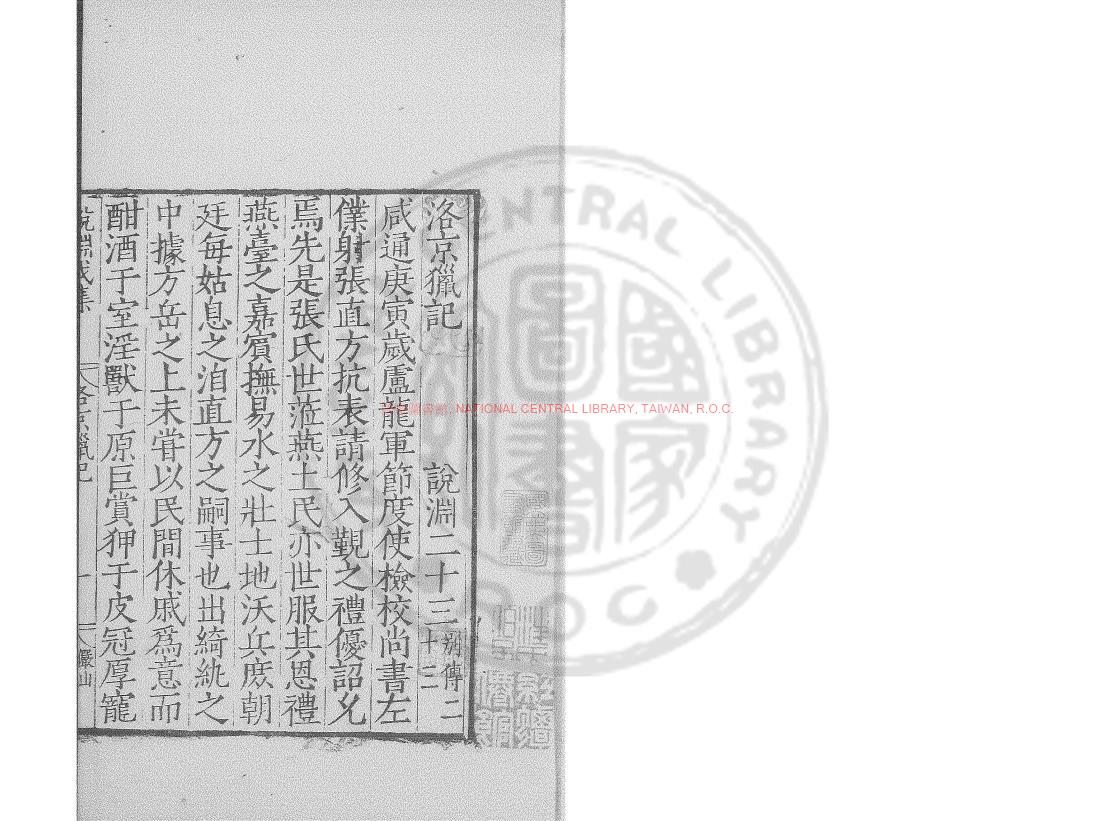 洛京獵記 說淵二十三 別傳二十二
咸通庚寅歲盧龍軍節度使檢校尚書左
僕射張直方抗表請修入覲之禮優詔允
焉先是張氏世蒞燕土民亦世服其恩禮
燕臺之嘉賔撫易水之壯士地沃兵庶朝
廷每姑息之洎直方之嗣事也出綺紈之
中據方岳之上未甞以民間休戚爲意而
酣酒于室淫獸于原巨賞狎于皮冠厚寵
洛京獵記 一 儼山
NATIONAL CENTRAL LIBRARY, TAIWAN, R.O.C.
CENTRAL LIBRARY
ROC